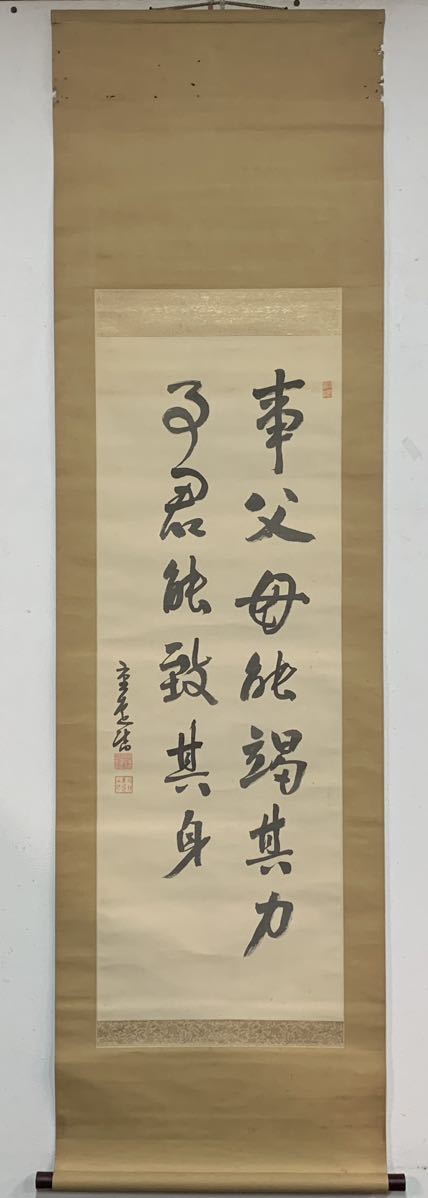 事父母能竭其力
事君能致其身